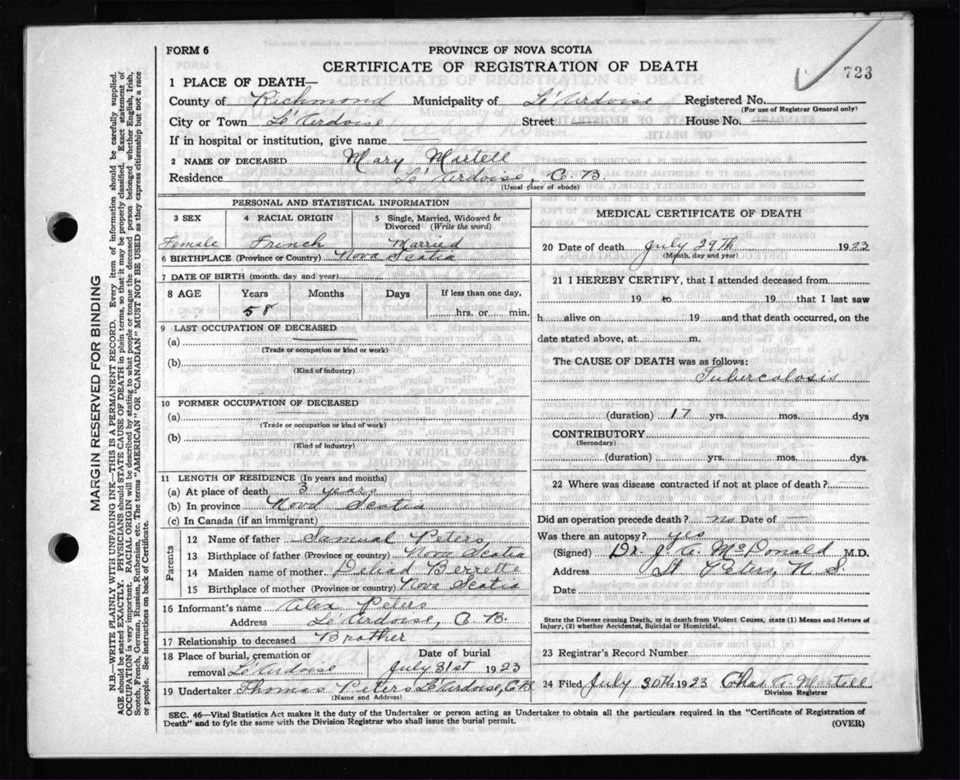 FORM 6
PROVINCE OF NOVA SCOTIA
CERTIFICATE OF REGISTRATION OF DEATH
723
1 PLACE OF DEATH—
County of Richmond Municipality of Le'Ardoise Registered No.
(For use of Registrar General only)
City or Town Le'Ardoise Street House No.
If in hospital or institution, give name
2 NAME OF DECEASED Mary Martell
Residence Le'Ardoise, C. B.
(Usual place of abode)
PERSONAL AND STATISTICAL INFORMATION
3 SEX 4 RACIAL ORIGIN 5 Single, Married, Widowed or Divorced (Write the word)
Female French Married
6 BIRTHPLACE (Province or Country) Nova Scotia
7 DATE OF BIRTH (month, day and year)
8 AGE Years Months Days If less than one day,
58 hrs. or min.
9 LAST OCCUPATION OF DECEASED
(a)
(Trade or occupation or kind or work)
(b)
(Kind of industry)
10 FORMER OCCUPATION OF DECEASED
(a)
(Trade or occupation or kind or work)
(b)
(Kind of industry)
11 LENGTH OF RESIDENCE (In years and months)
(a) At place of death years
(b) In province Nova Scotia
(c) In Canada (if an immigrant)
Parents
12 Name of father Samual Peters
13 Birthplace of father (Province or country) Nova Scotia
14 Maiden name of mother Berrette
15 Birthplace of mother (Province or country) Nova Scotia
16 Informant's name Alex Peters
Address Le'Ardoise, C. B.
17 Relationship to deceased Brother
18 Place of burial, cremation or removal Le'Ardoise Date of burial July 31st 1923
19 Undertaker Thomas Peters Le'Ardoise, C.B.
(Name and Address)
MEDICAL CERTIFICATE OF DEATH
20 Date of death July 29th 1923
(Month, day and year)
21 I HEREBY CERTIFY, that I attended deceased from
19 to 19 that I last saw
h alive on 19 and that death occurred, on the
date stated above, at m.
The CAUSE OF DEATH was as follows:
Tuberculosis
(duration) 17 yrs. mos. dys
CONTRIBUTORY
(Secondary)
(duration) yrs. mos. dys.
22 Where was disease contracted if not at place of death?
Did an operation precede death? no Date of —
Was there an autopsy? yes
(Signed) Dr. J. A. McDonald M.D.
Address St. Peters, N. S.
Date
State the Disease causing Death, or in death from Violent Causes, state (1) Means and Nature of
Injury, (2) whether Accidental, Suicidal or Homicidal.
23 Registrar's Record Number
24 Filed July 30th 1923 Martell
Division Registrar
SEC. 46—Vital Statistics Act makes it the duty of the Undertaker or person acting as Undertaker to obtain all the particulars required in the "Certificate of Registration of
Death" and to fyle the same with the Division Registrar who shall issue the burial permit.
(OVER)
MARGIN RESERVED FOR BINDING
N.B.—WRITE PLAINLY WITH UNFADING INK—THIS IS A PERMANENT RECORD. Every item of information should be carefully supplied.
AGE should be stated EXACTLY. PHYSICIANS should STATE CAUSE OF DEATH in plain terms, so that it may be properly classified. Exact statement of
OCCUPATION is very important. RACIAL ORIGIN will be described by stating to what people or tongue the deceased person belonged whether English, Irish,
Scotch, French, German, Russian, Ruthenian, etc. The terms "AMERICAN" OR "CANADIAN" MUST NOT BE USED as they express citizenship but not a race
or people. See instructions on back of Certificate.